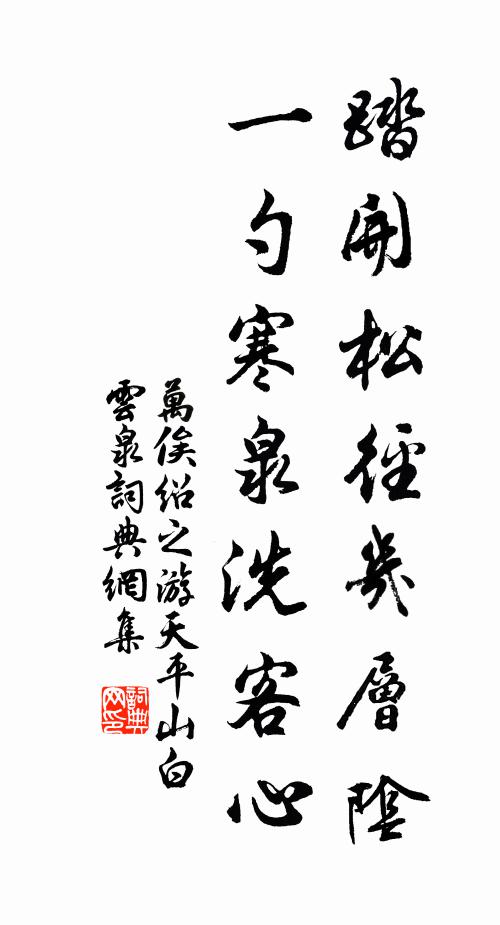 踏開松徑幾層陰
一勺寒泉洗客心
萬俟紹之游天平山白
雲泉詞典網集
詞典
网印